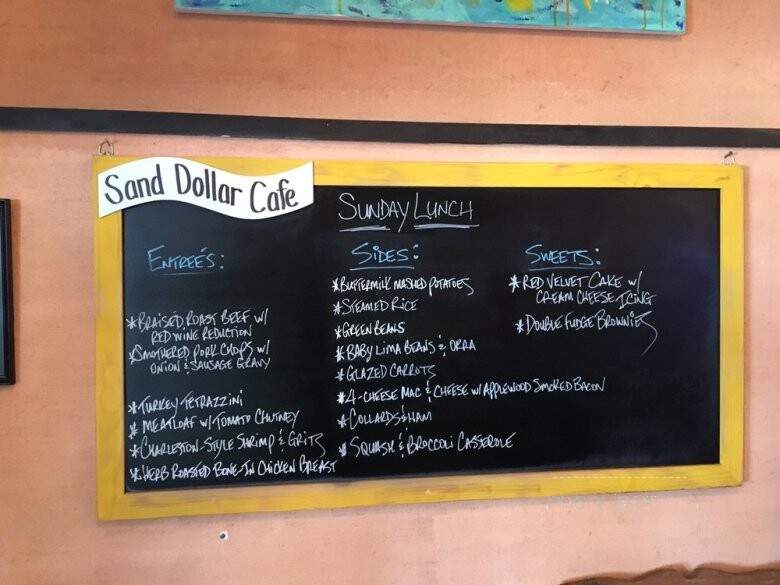 Sand Dollar Cafe
SUNDAY LUNCH
ENTREÉS:
*BRAISED ROAST BEEF W/
RED WINE REDUCTION
*SMOTHERED PORK CHOPS W/
ONION & SAUSAGE GRAVY
*TURKEY TETRAZZINI
*MEATLOAF W/ TOMATO CHUTNEY
*CHARLESTON-STYLE SHRIMP & GRITS
*HERB ROASTED BONE-IN CHICKEN BREAST
SIDES:
*BUTTERMILK MASHED POTATOES
*STEAMED RICE
*GREEN BEANS
*BABY LIMA BEANS & OKRA
*GLAZED CARROTS
*4-CHEESE MAC & CHEESE W/ APPLEWOOD SMOKED BACON
*COLLARDS & HAM
*SQUASH & BROCCOLI CASSEROLE
SWEETS:
*RED VELVET CAKE W/
CREAM CHEESE ICING
*DOUBLE FUDGE BROWNIES